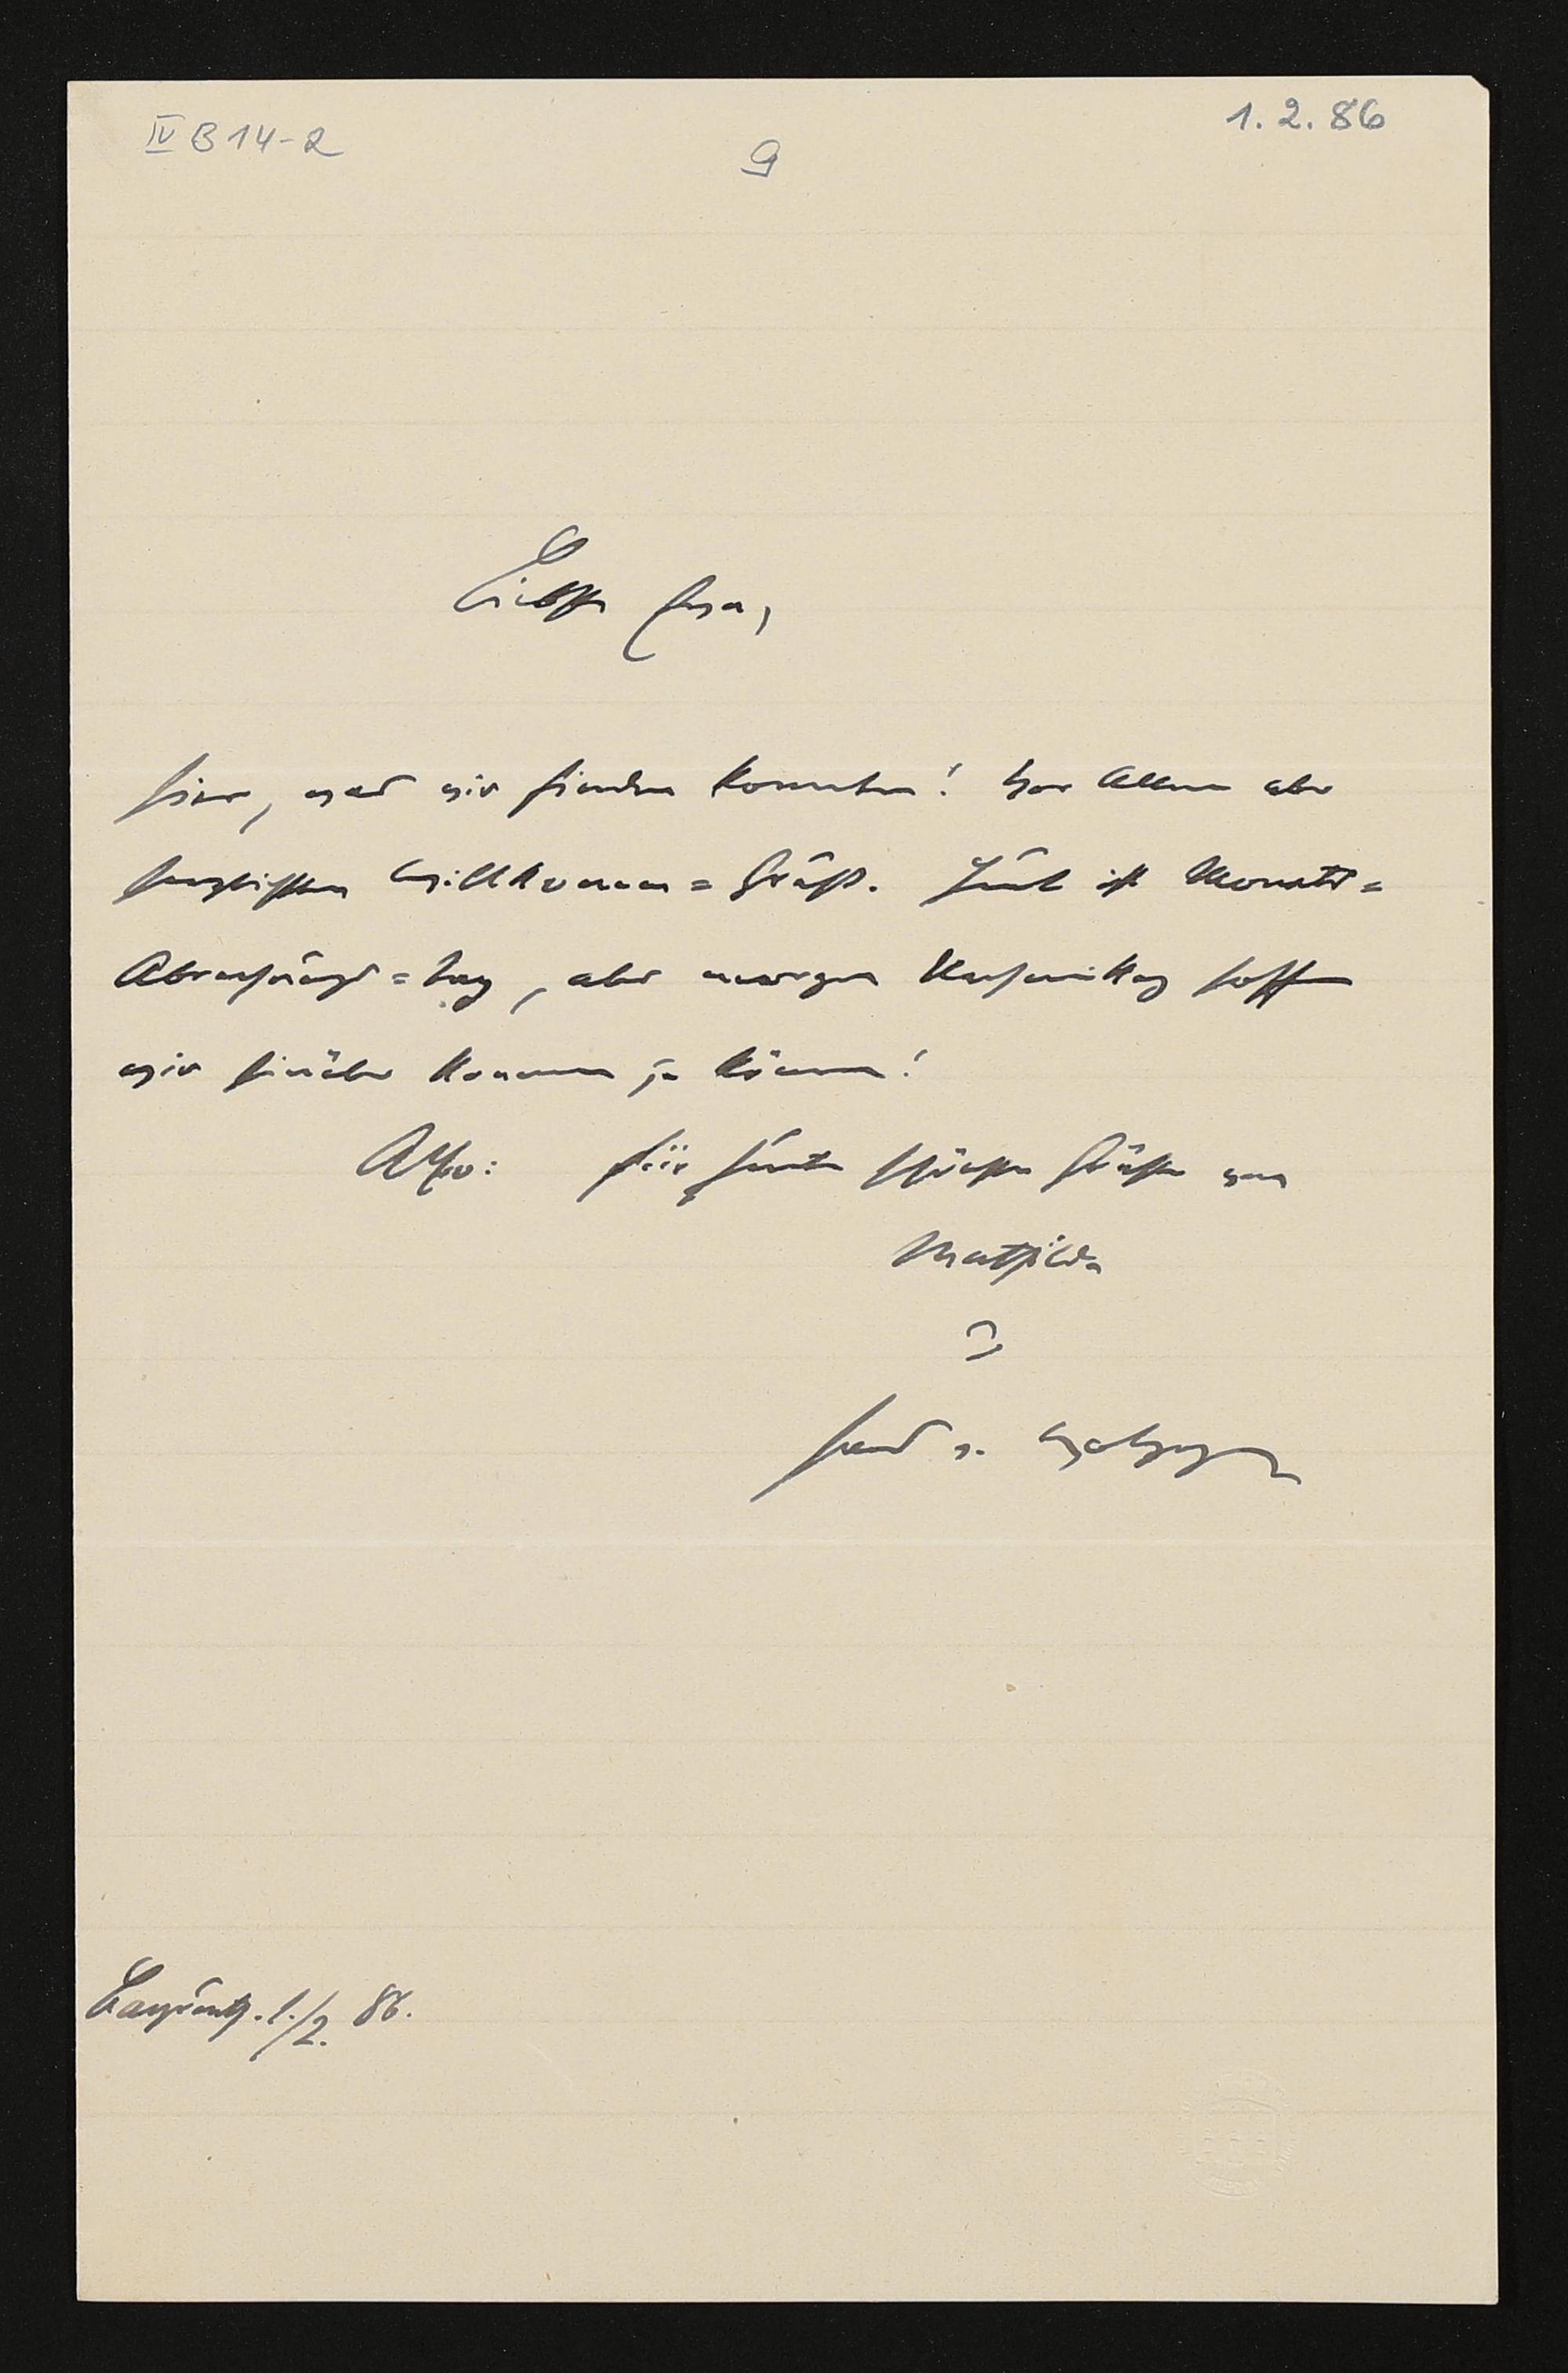 IV B 14-2
9
1. 2. 86
Liebste Eva,
hier, was wir finden konnten! Vor Allem aber
herzlichsten Willkommen=Gruß. Heut ist Monats=
Abrechnungs=tag, aber morgen Nachmittag hoffen
wir hinüber kommen zu können!
Also: für heute schönste Grüße von
Mathilde
u.
Hans v. Wolzogen
Bayreuth. 1./2. 86.